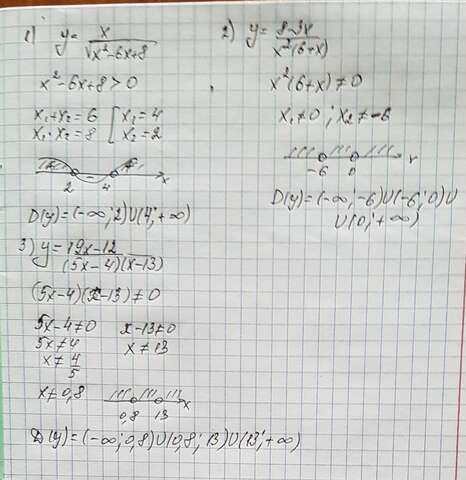 1) y = x / √(x²-6x+8)
x²-6x+8>0
x₁+x₂=6 [ x₁=4
x₁·x₂=8 [ x₂=2
+ - +
2 4 x
D(y)=(-∞;2)U(4;+∞)
2) y = 8-3x / x²(6+x)
x²(6+x)≠0
x₁≠0; x₂≠-6
-6 0 x
D(y)=(-∞;-6)U(-6;0)U
U(0;+∞)
3) y = 19x-12 / (5x-4)(x-13)
(5x-4)(x-13)≠0
5x-4≠0 x-13≠0
5x≠4 x≠13
x≠4/5
x≠0,8
0,8 13 x
D(y)=(-∞;0,8)U(0,8;13)U(13;+∞)